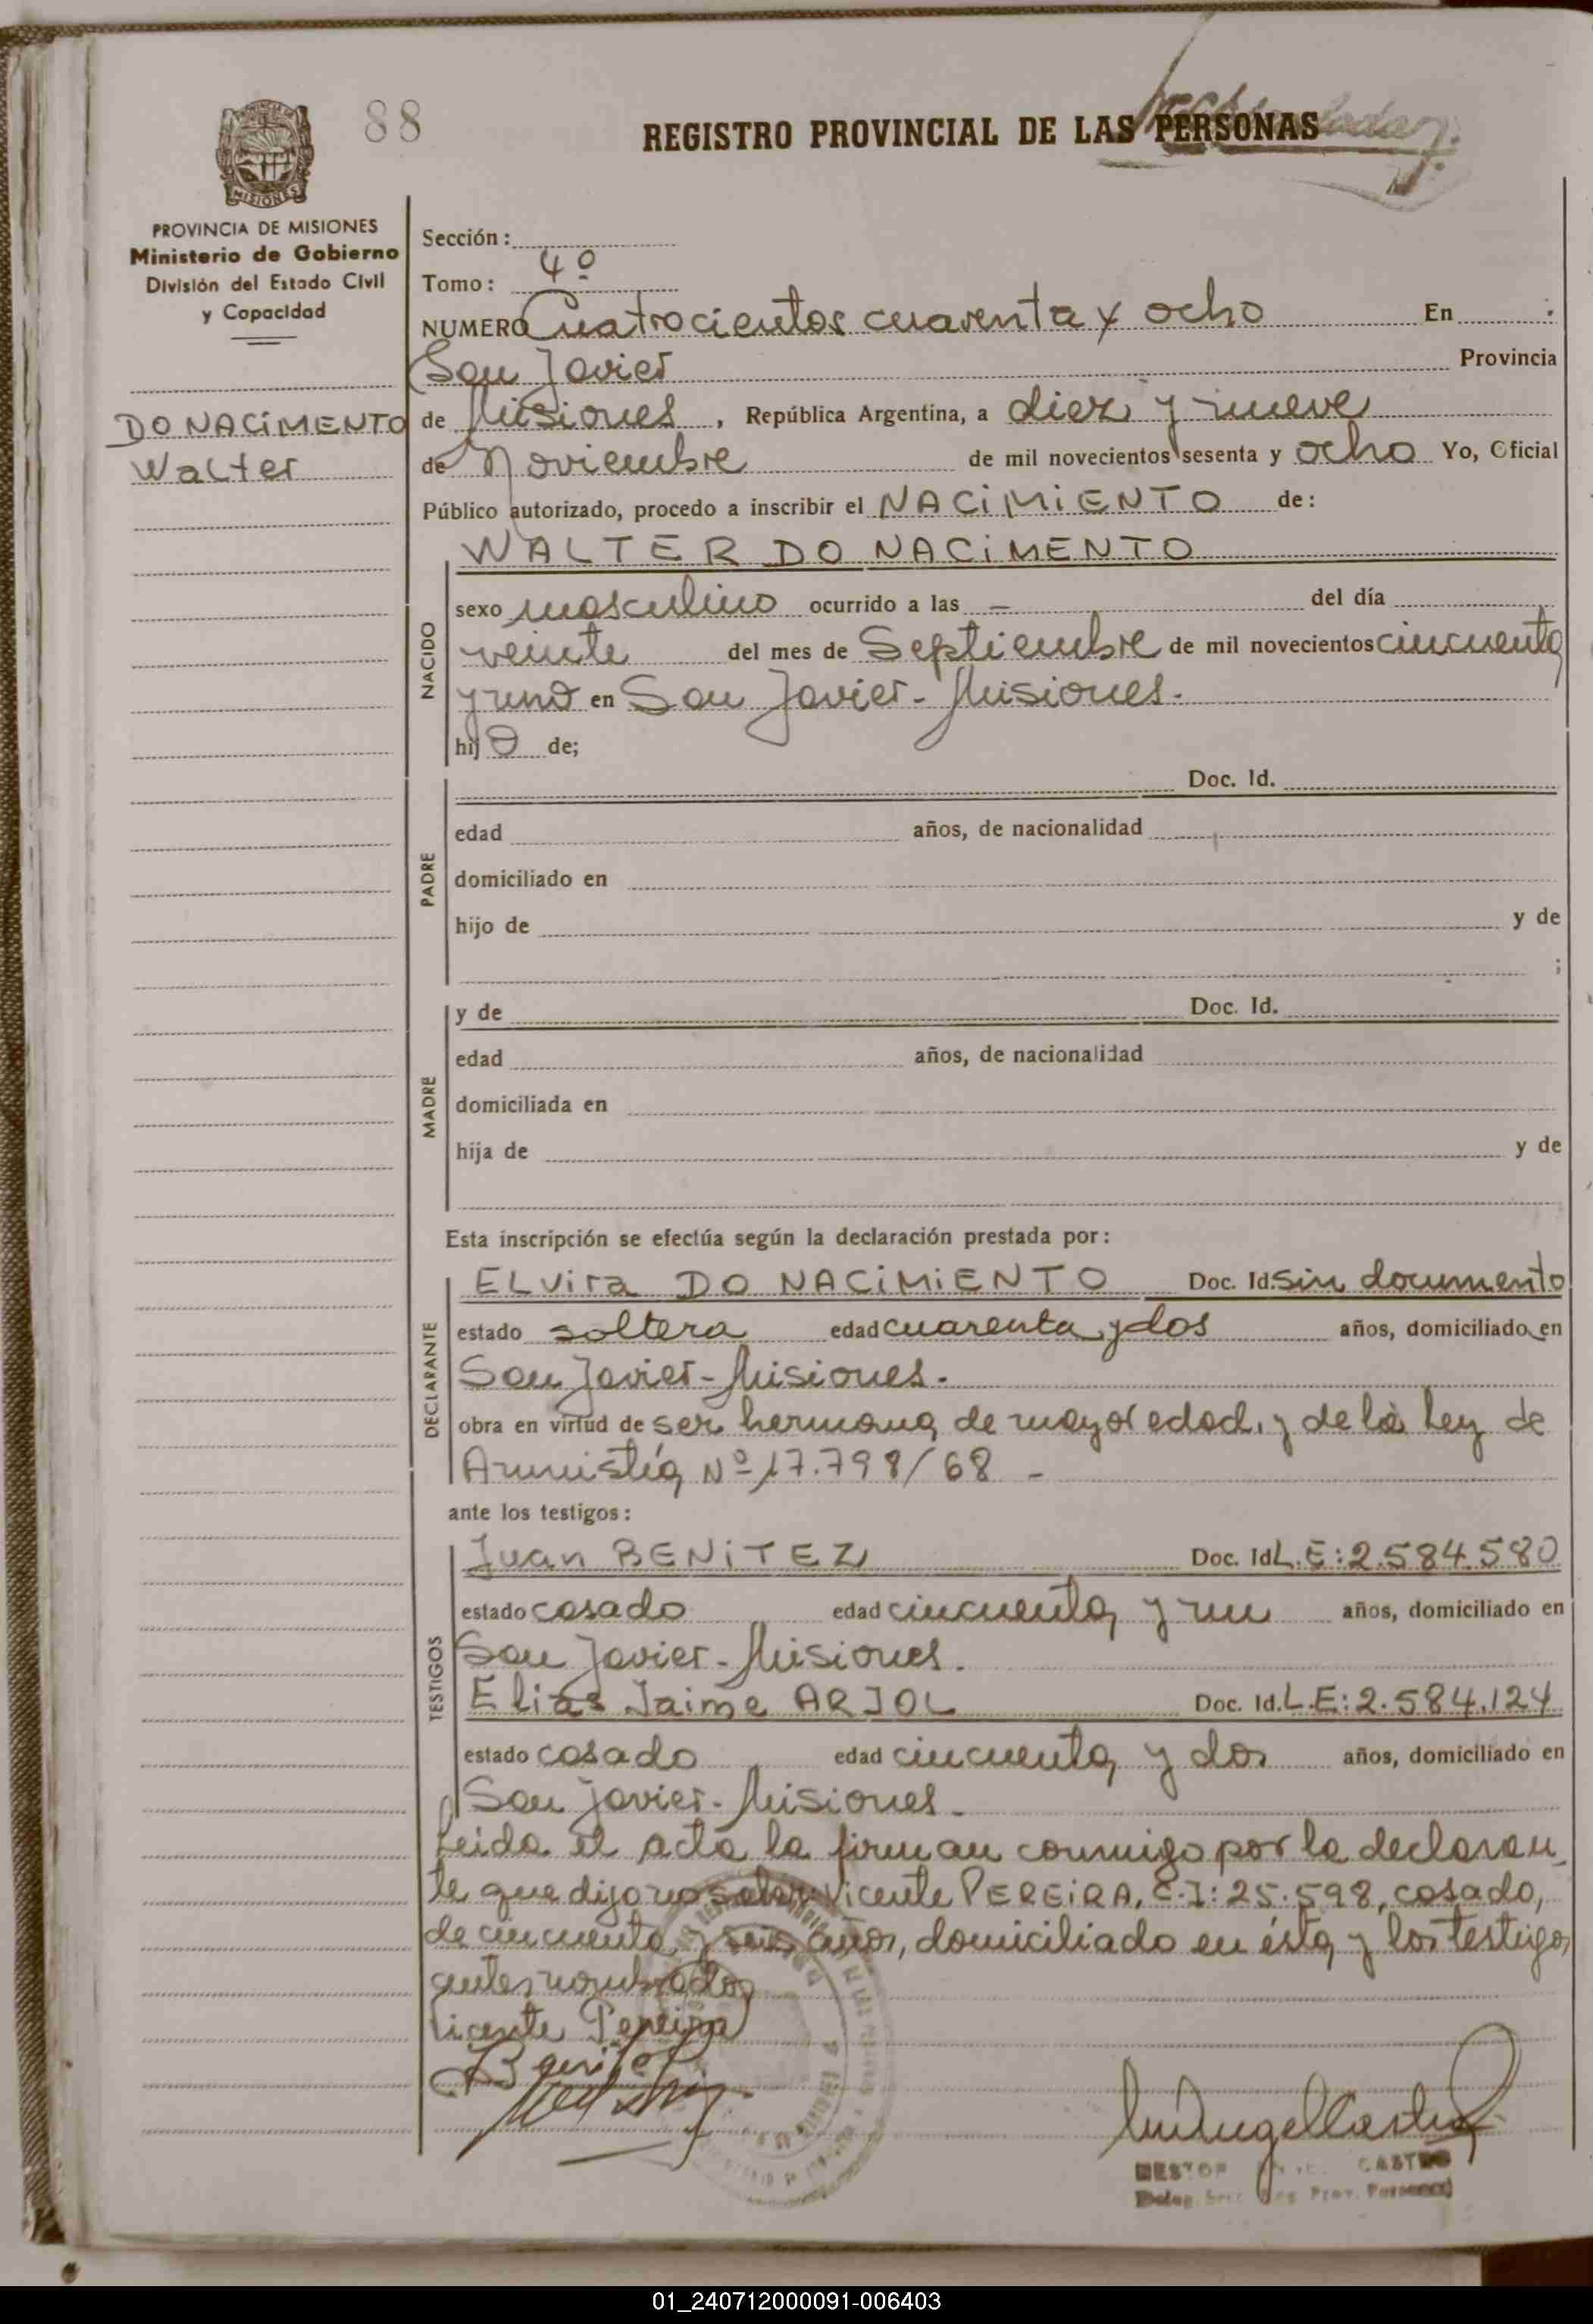 88
REGISTRO PROVINCIAL DE LAS PERSONAS
PROVINCIA DE MISIONES
Ministerio de Gobierno
División del Estado Civil
y Capacidad
DO NACIMENTO
Walter
Sección:
Tomo: 4º
NUMERO Cuatrocientos cuarenta y ocho En
San Javier Provincia
de Misiones, República Argentina, a diez y nueve
de Noviembre de mil novecientos sesenta y ocho Yo, Oficial
Público autorizado, procedo a inscribir el NACIMIENTO de:
WALTER DO NACIMENTO
NACIDO
sexo masculino ocurrido a las — del día
veinte del mes de Septiembre de mil novecientos cincuenta
y uno en San Javier - Misiones.
hijo de;
PADRE
Doc. Id.
edad años, de nacionalidad
domiciliado en
hijo de y de
;
MADRE
y de Doc. Id.
edad años, de nacionalidad
domiciliada en
hija de y de
Esta inscripción se efectúa según la declaración prestada por:
DECLARANTE
ELVira DO NACIMIENTO Doc. Id. sin documento
estado soltera edad cuarenta y dos años, domiciliado en
San Javier - Misiones.
obra en virtud de ser hermana de mayor edad, y de la ley de
Amnistía Nº 17.798/68 -
ante los testigos:
TESTIGOS
Juan BENITEZ Doc. Id. L.E: 2.584.580
estado casado edad cincuenta y un años, domiciliado en
San Javier - Misiones.
Elias Jaime ARJOL Doc. Id. L.E: 2.584.124
estado casado edad cincuenta y dos años, domiciliado en
San Javier - Misiones.
Leida el acta la firman conmigo por la declaran
te que dijo no saber Vicente PEREIRA, C.I: 25.598, casado,
de cincuenta y seis años, domiciliado en ésta y los testigos
antes nombrados
Vicente Pereira
CASTRO
01_240712000091-006403